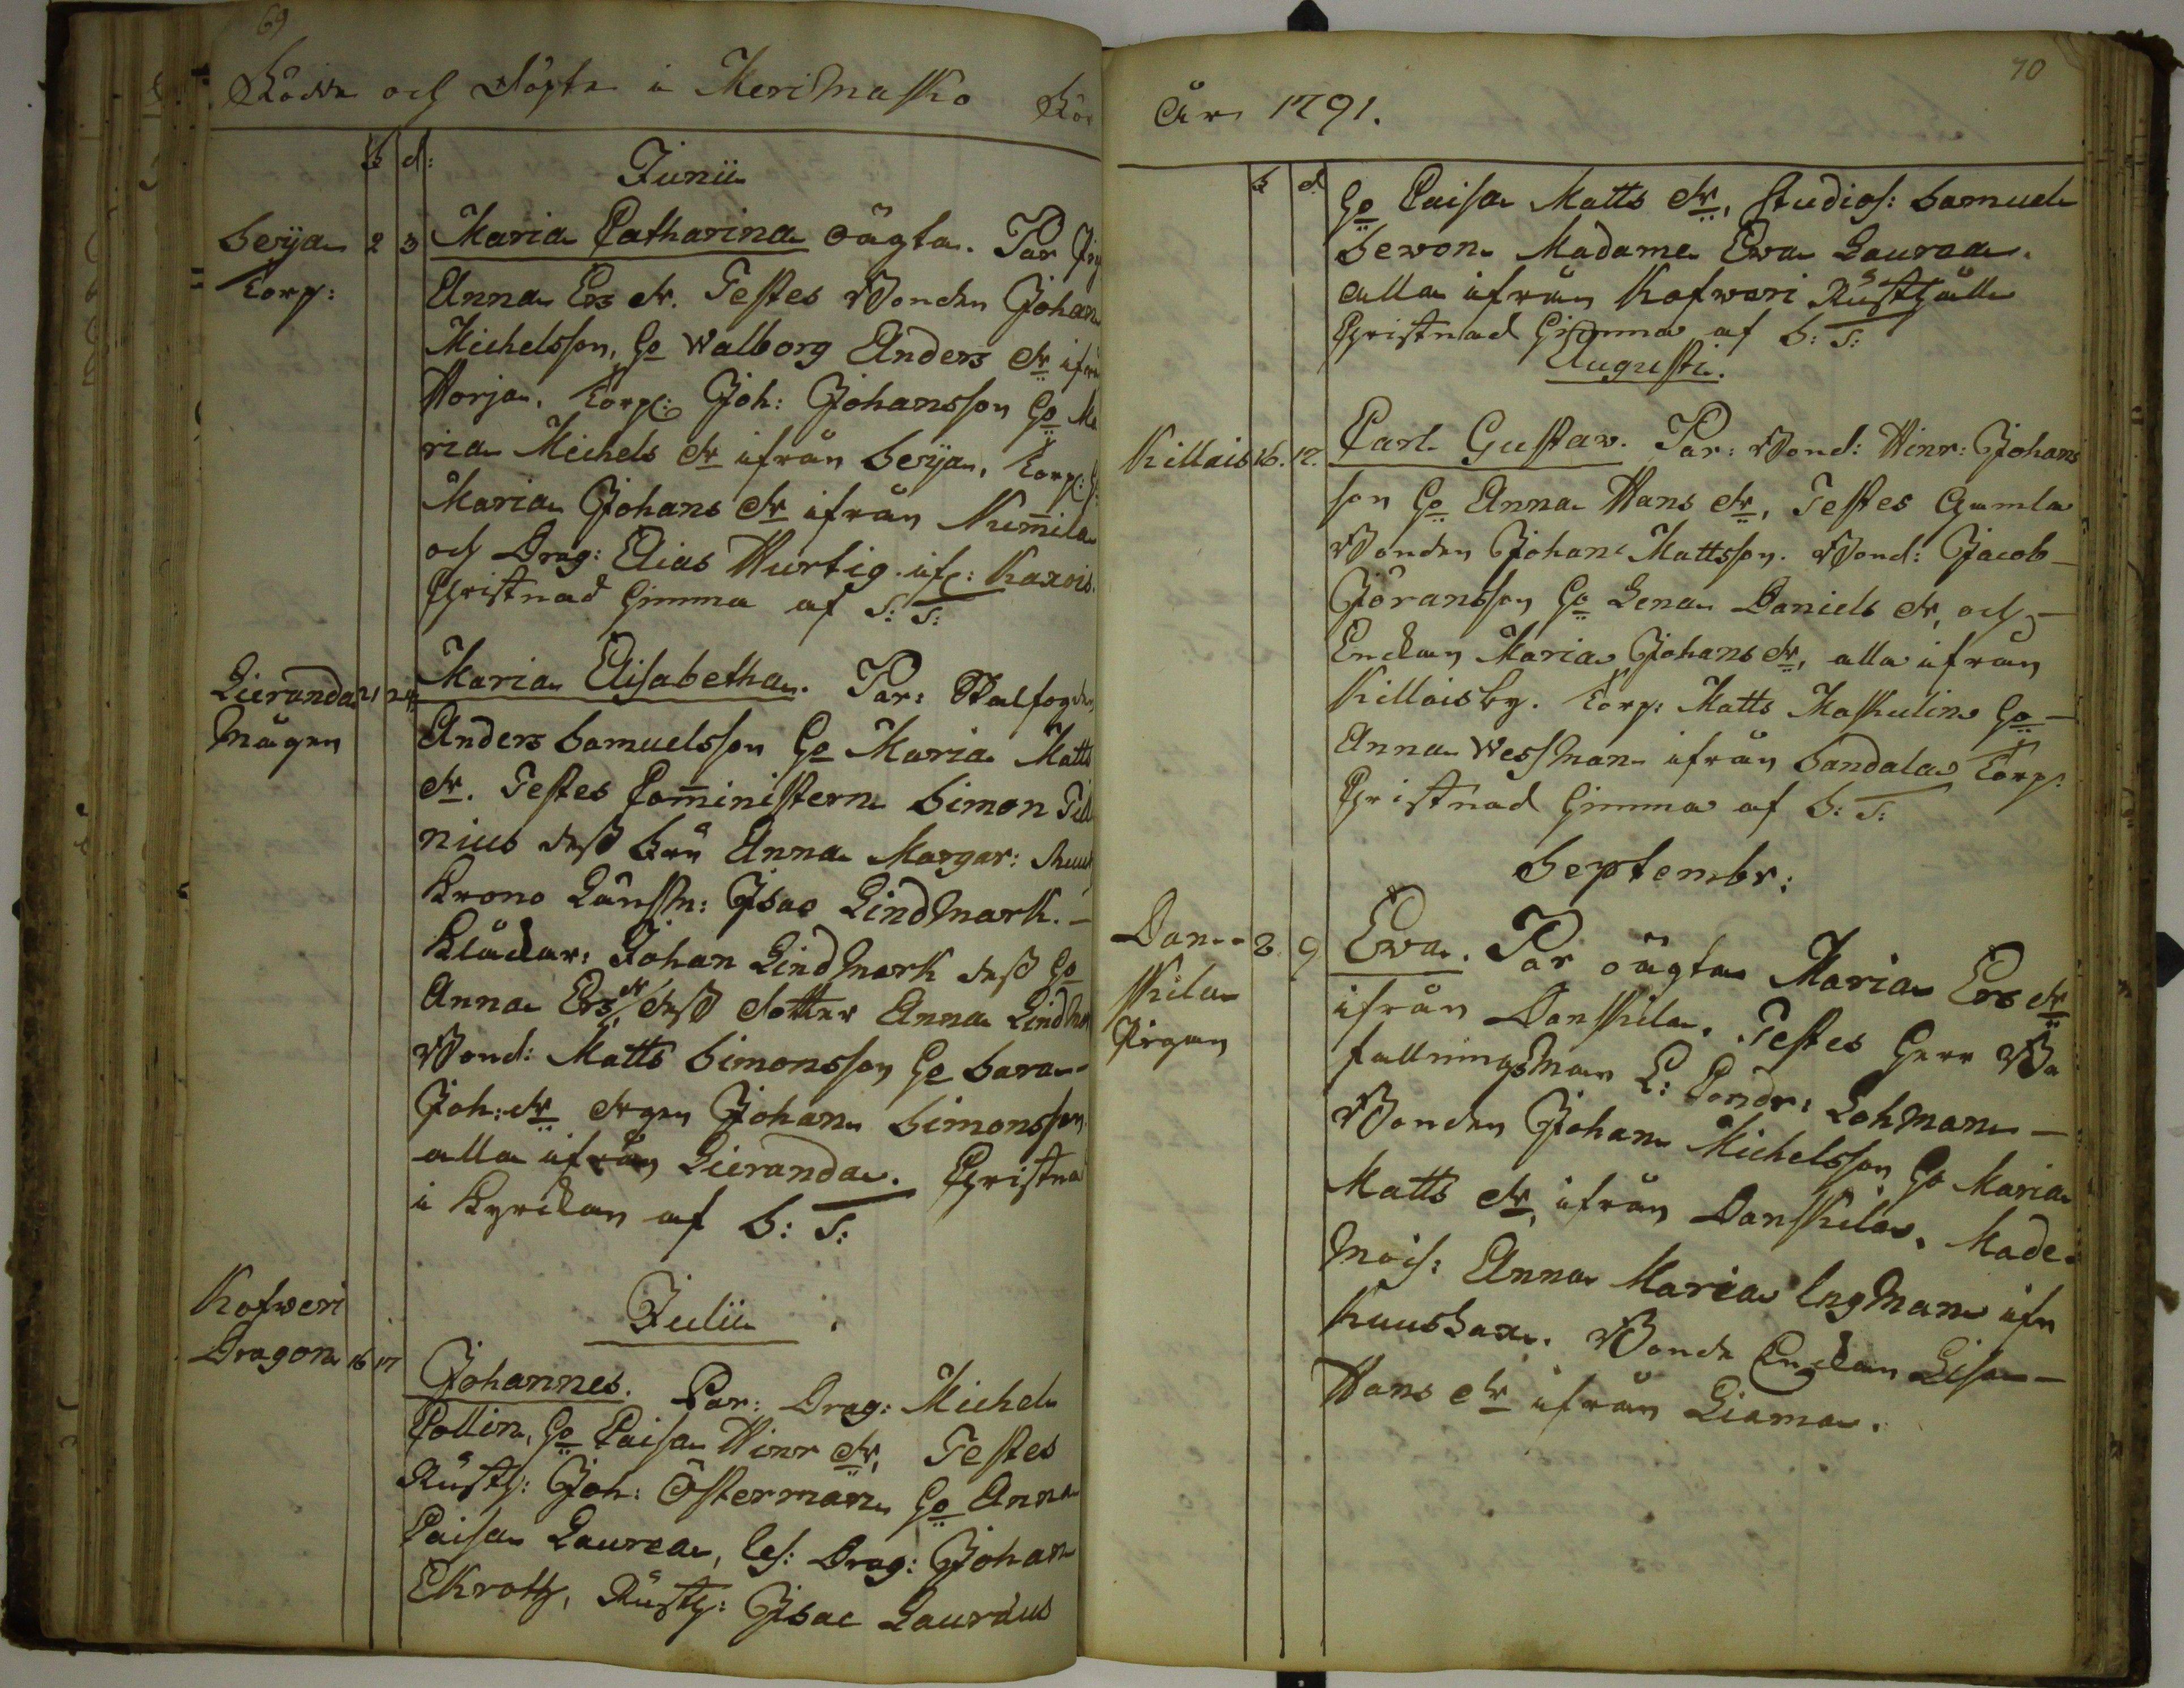 69
Födde och döpte i Merimasko
b d:
Junii
Seija 2 3 Maria Catharina oägta. Par
Torp: Anna Ers dr. Testes Bonden Johan
Michelsson, ho Walborg Anders dr ifrån
Horja. Torp: Joh: Johansson ho Ma
ria Michels dr ifrån Seija, Torp:
Maria Johans dr ifrån Num̅ila
och Drag: Elias Hurtig. if: Karois.
Christnad hemma af S: T:
Lieranda 21 24 Maria Elisabetha. Par:
Mågen Anders Samuelsson ho Maria Matts
dr. Testes Com̅inistern Simon Till
nius dess fru Anna Margar:
Krono Länsm: Isac Lindmark.
Klåckar: Johan Lindmark dess ho
Anna Ers dr, dess dotter Anna Lindm
Bond: Matts Simonsson ho Sara
Joh: dr drgen Johan Simonsson
alla ifrån Lieranda. Christna
i Kyrckan af S: T:
Julii
Kofweri
Dragon 16 17 Johannes. Par: Drag: Michel
Collin, ho Caisa Hinr dr, Testes
Rusth: Joh: Österman ho Anna
Caisa Laurea, Drag: Johan
Ekroth, Rusth: Isac Lauræus
70
År 1791.
b d
ho Caisa Matts dr, Studios: Samuel
Sewon Madame Ewa Laurea.
alla ifrån Kofweri Rusthåll
Christnad hemma af S: T:
Augusti.
Killais 16. 17. Carl Gustav. Par: Bond: Hinr: Johans
son ho Anna Hans dr, Testes Gamla
Bonden Johan Mattsson. Bond: Jacob
Jöransson ho Lena Daniels dr, och
Enckan Maria Johans dr, alla ifrån
Killaisby. Torp: Matts Maskulin ho
Anna Wessman ifrån Sandala Torp:
Christnad hemma af S: T:
Septembr:
Dan 2. 9 Ewa. Par oägta Maria Ers dr
skila ifrån Danskila. Testes Herr Be
Pigan fallningsman C: Lohman
Bonden Johan Michelsson ho Maria
Matts dr, ifrån Danskila. Made
mois: Anna Maria Engman ifr
Kuuskax. Bonde Enckan Lisa
Hans dr ifrån Liema.